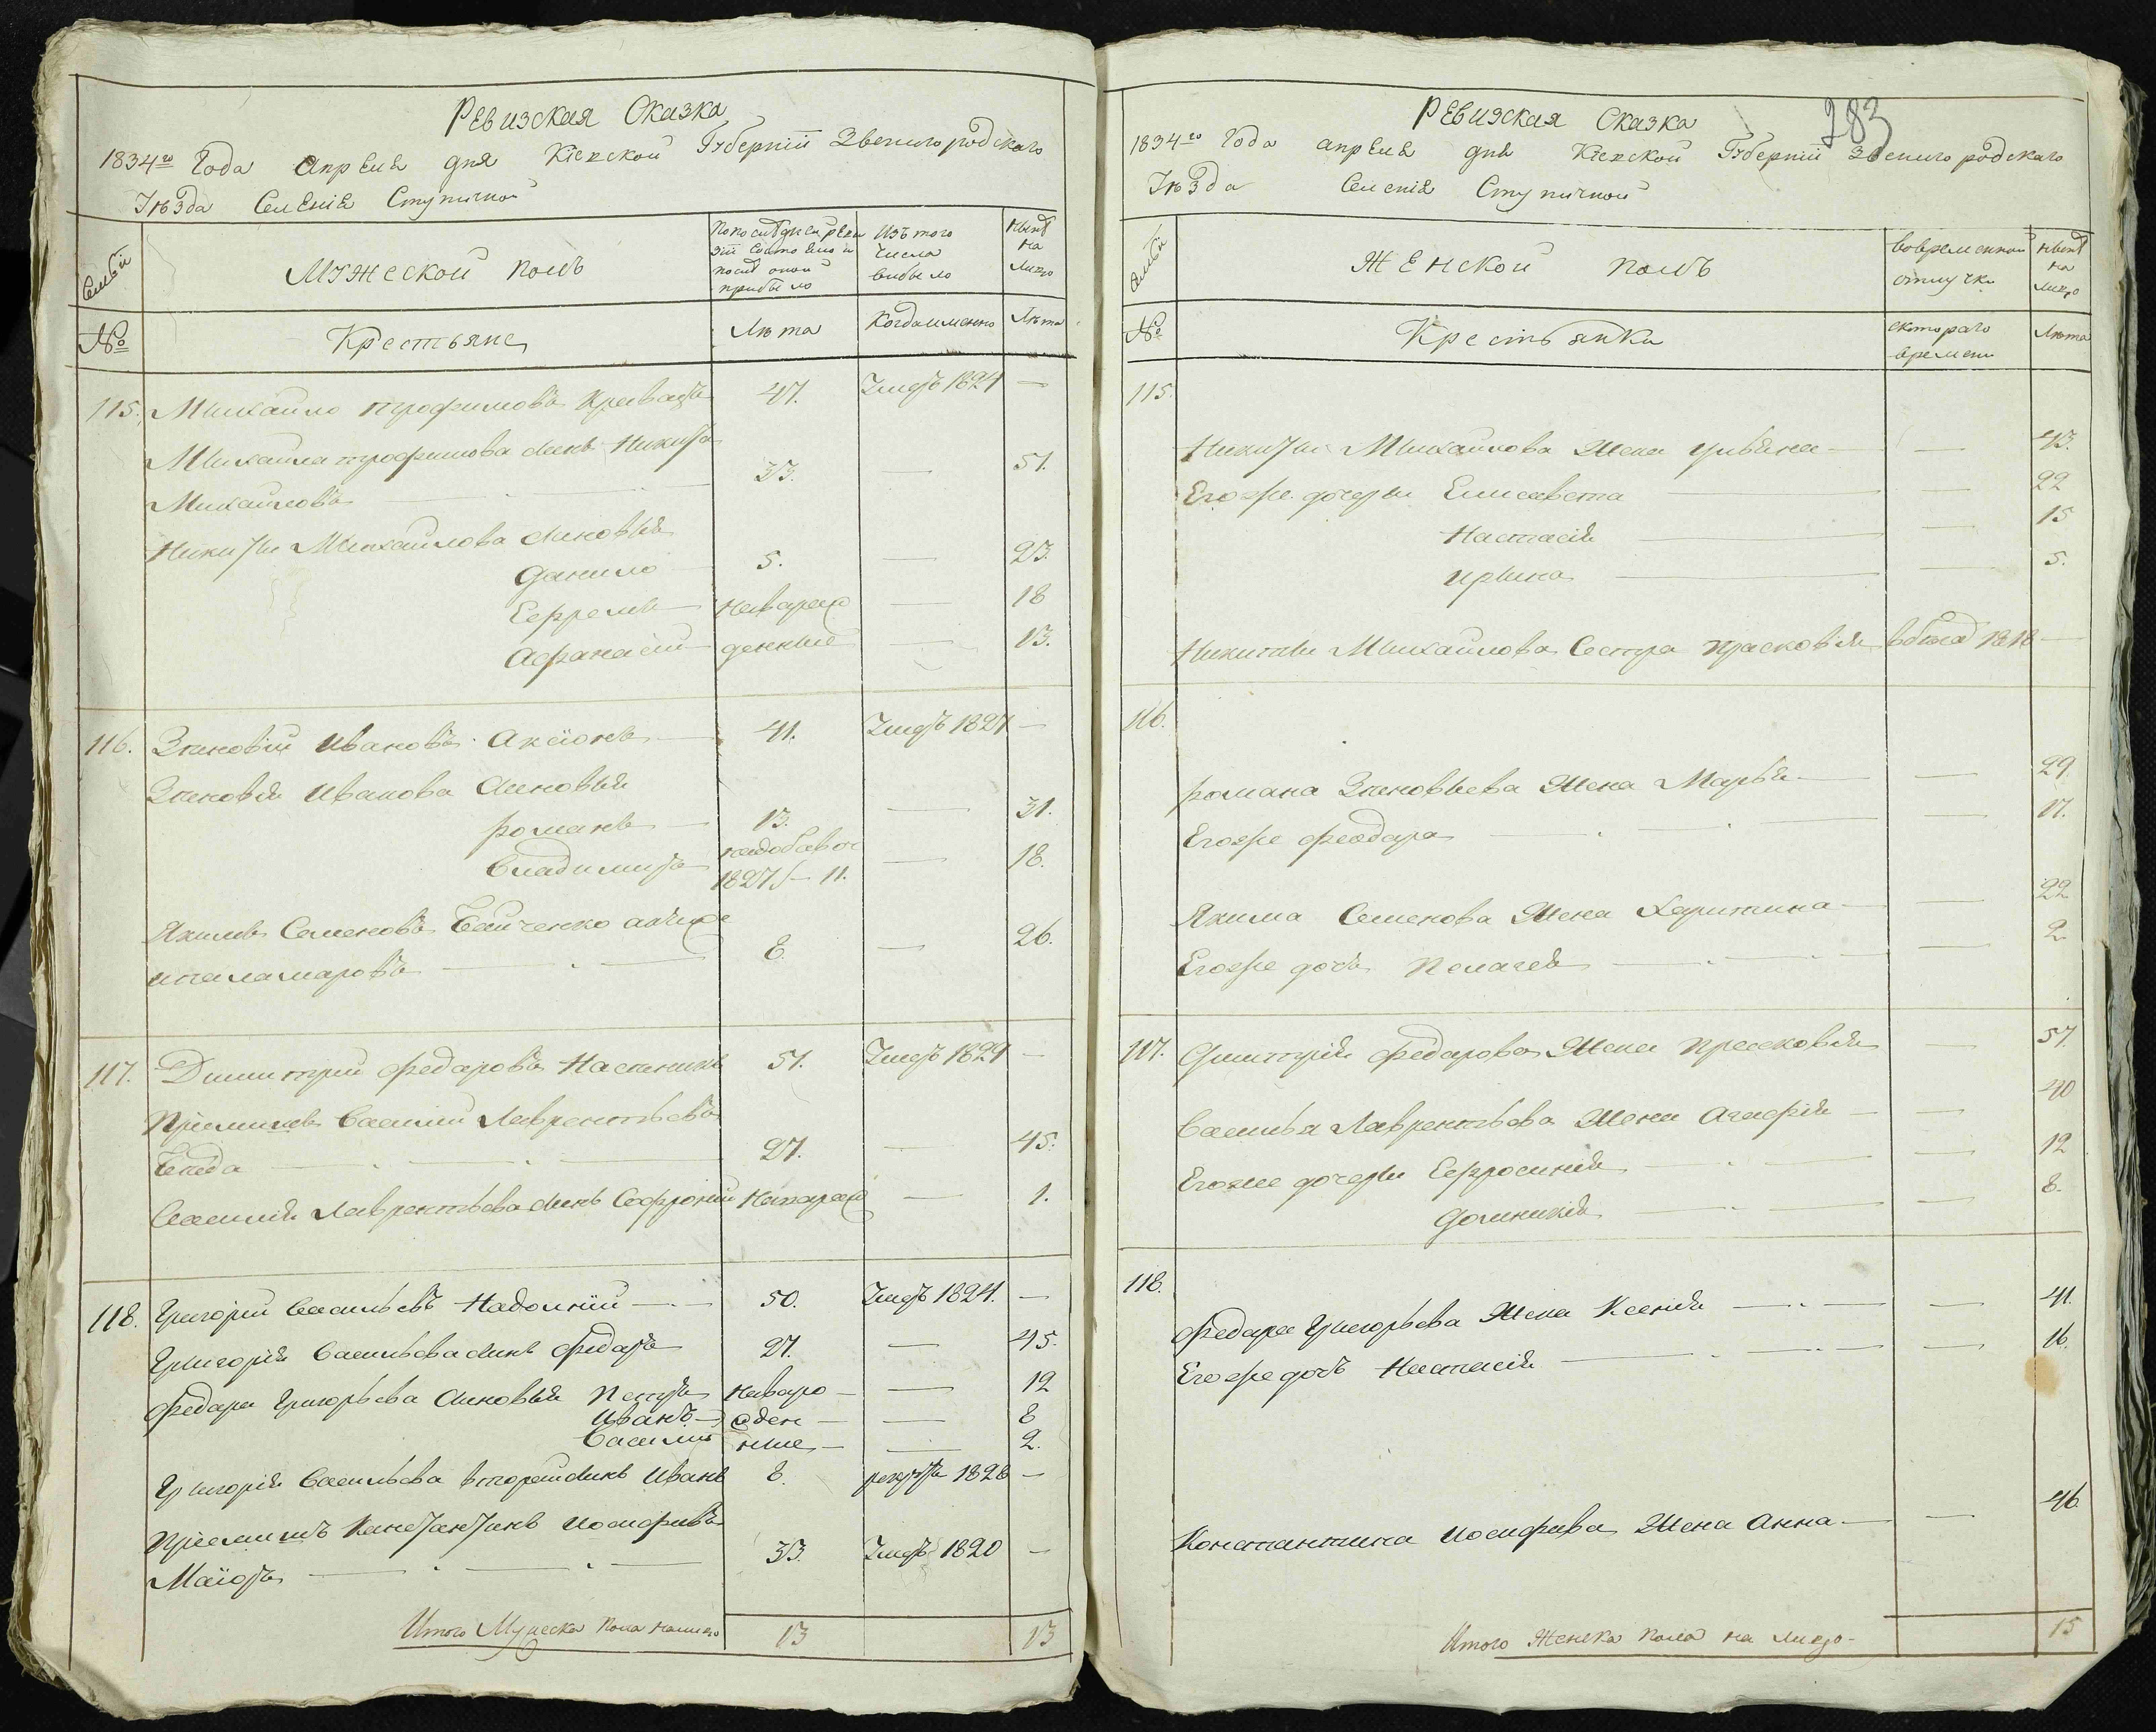 Ревизская Сказка
1834го Года Апреля дня Кіевской Губерніи Звенигородского
Уѣзда Селенія Ступичной
Семьи
Мужеской полъ
По последней реви
зіи состояло и
после оной
прибыло
Изъ того
числа
выбыло
Ныне
на
лицо
№
Крестьяне
Лѣта
Когда именно
Лѣта
115. Михайло Трофимовъ Кравецъ 47. Умеръ 1824 —
Михайла Трофимова Сынъ Никита
Михайловъ 33. — 51.
Никиты Михайлова Сыновья
Данило 5. — 23.
Ефремъ новорож — 18
Афанасий денные — 13.
116. Зиновій Ивановъ Аксіонъ 41. Умеръ 1827 —
Зиновія Иванова Сыновья
Романъ 13. — 31.
Владимиръ надобавок — 18.
1827/— 11.
Якимъ Семеновъ Бойченко
ипаламаровъ 8. — 26.
117. Димитрий Федоровъ Насынникъ 57. Умеръ 1829 —
Пріемишъ Василий Лаврентьевъ
Бнеда 27. — 45.
Василія Лаврентьева Сынъ Софроній Новорож — 1.
118. Григорій Васильевъ Надольній 50. Умеръ 1824. —
Григорія Васильева Сынъ Федоръ 27. — 45.
Федора Григорьева Сыновья Петръ новоро — 12
Иванъ жден — 8
Василий ние — 2.
Григорія Васильева второй Сынъ Иванъ 8. рекрутъ 1828 —
Пріемишъ Канстантинъ Иосифовъ
Маіоръ 33. Умеръ 1820 —
Итого Мужеска пола налицо 13 13
283
Ревизская Сказка
1834го Года апреля дня Кіевской Губерніи Звенигородскаго
Уѣзда Селенія Ступичной
Семьи
Женской полъ
Во временной
отлучки
Ныне
на
лицо
№
Крестьянки
с котораго
времени
Лѣта
115.
Никиты Михайлова Жена Ульяна — 43.
Егоже дочери Елисавета — 22
Настасія — 15
Ирина — 5.
Никиты Михайлова Сестра Прасковія 1818 —
116.
Романа Зиновьева Жена Марья — 29.
Егоже Феодора — 17.
Якима Семенова Жена Харитина — 22
Егоже дочъ Пелагея — 2
117. Димитрія Федорова Жена Прасковія — 57.
Василья Лаврентьева Жена Агафія — 40
Егоже дочери Ефросинія — 12
Домникія — 8.
118.
Федора Григорьева Жена Ксенія — 41.
Егоже дочъ Настасія — 16.
Констаптина Иосифова Жена Анна — 46.
Итого Женска пола на лицо — 15